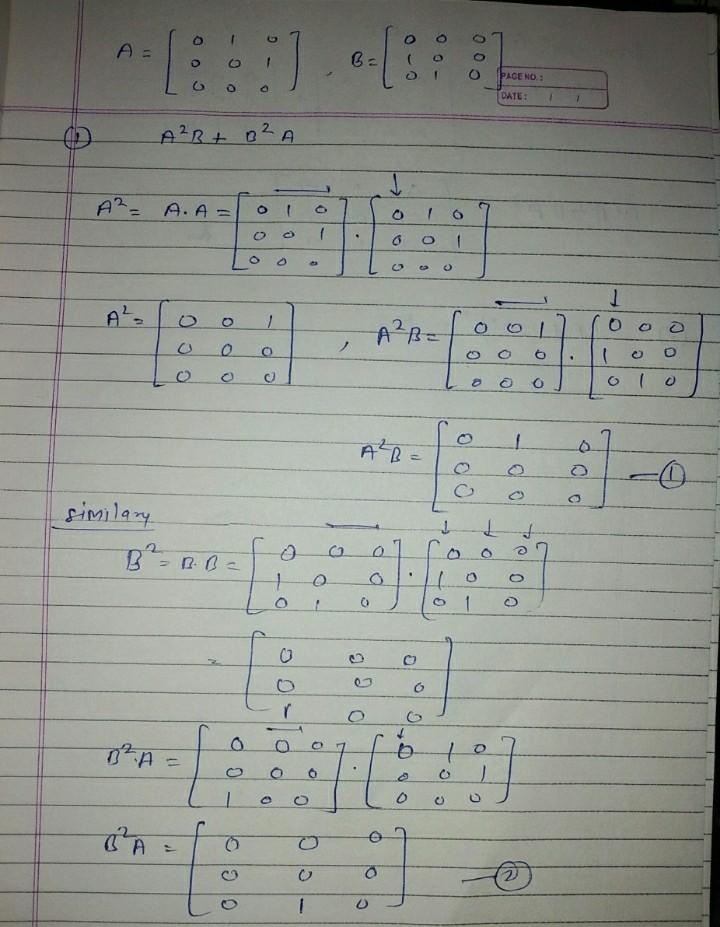 A = [ 0 1 0 ; 0 0 1 ; 0 0 0 ] , B = [ 0 0 0 ; 1 0 0 ; 0 1 0 ]
PAGE NO.:
DATE: / /
① A²B + B²A
A² = A·A = [ 0 1 0 ; 0 0 1 ; 0 0 0 ] · [ 0 1 0 ; 0 0 1 ; 0 0 0 ]
A² = [ 0 0 1 ; 0 0 0 ; 0 0 0 ] , A²B = [ 0 0 1 ; 0 0 0 ; 0 0 0 ] · [ 0 0 0 ; 1 0 0 ; 0 1 0 ]
A²B = [ 0 1 0 ; 0 0 0 ; 0 0 0 ] — ①
similary
B² = B·B = [ 0 0 0 ; 1 0 0 ; 0 1 0 ] · [ 0 0 0 ; 1 0 0 ; 0 1 0 ]
= [ 0 0 0 ; 0 0 0 ; 1 0 0 ]
B²·A = [ 0 0 0 ; 0 0 0 ; 1 0 0 ] · [ 0 1 0 ; 0 0 1 ; 0 0 0 ]
B²A = [ 0 0 0 ; 0 0 0 ; 0 1 0 ] — ②